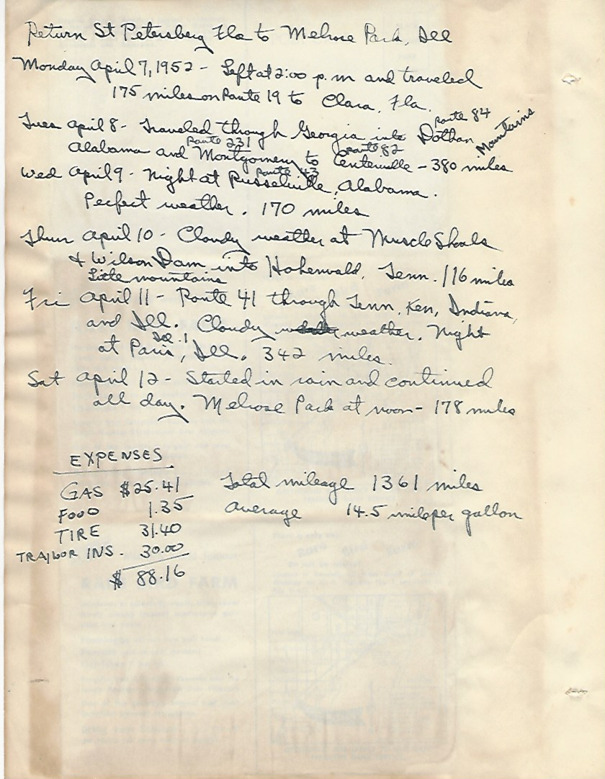 Return St Petersberg Fla to Melrose Park, Ill
Monday April 7, 1952 - Left at 2:00 p.m and traveled
175 miles on Route 19 to Clara, Fla.
Route 84
Tues April 8 - Traveled through Georgia into Dothan, Mountains
Route 231 Route 82
Alabama and Montgomery to Centerville - 380 miles
Route 43
Wed April 9 - Night at Russelville, Alabama.
Perfect weather. 170 miles
Thur April 10 - Cloudy weather at Muscle Shoals
& Wilson Dam into Hohenwald, Tenn. 116 miles
Little mountains
Fri April 11 - Route 41 through Tenn, Ken, Indiana,
and Ill. Cloudy weather. Night
Ill. 1
at Paris, Ill. 342 miles.
Sat April 12 - Started in rain and continued
all day. Melrose Park at noon - 178 miles
EXPENSES
GAS $25.41
FOOD 1.35
TIRE 31.40
TRAILOR INS. 30.00
$ 88.16
Total mileage 1361 miles
Average 14.5 mile per gallon